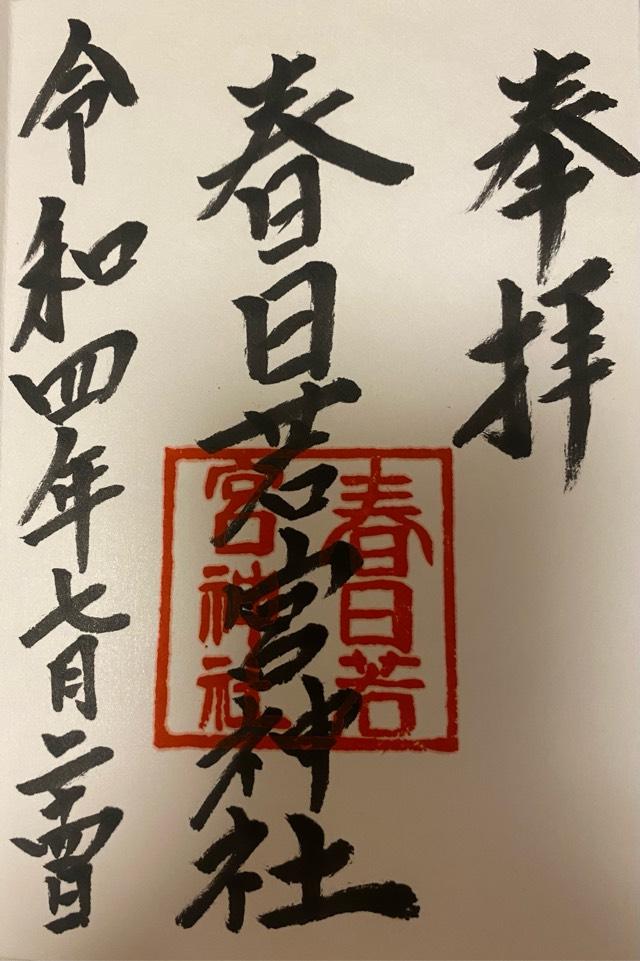 奉拝
春日若宮神社
春日若
宮神社
令和四年七月二十四日